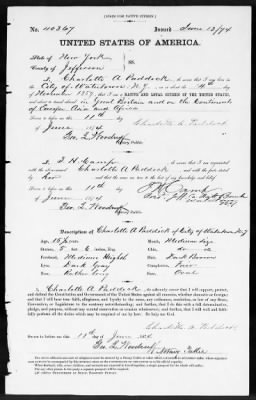 [FORM FOR NATIVE CITIZEN.]
No. 40367 Issued June 13/74
UNITED STATES OF AMERICA.
State of New York
County of Jefferson
SS.
I, Charlotte A Paddock, do swear that I was born in
the City of Watertown N.Y. on or about the 4th day of
November 1857; that I am a NATIVE AND LOYAL CITIZEN OF THE UNITED STATES,
and about to travel abroad in Great Britain and on the Continents
of Europe Asia and Africa
Sworn to before me this 11th day
of June 1874
Charlotte A Paddock
Geo. L. Woodruff
Notary Public.
I, T. H. Camp, do swear that I am acquainted
with the above-named Charlotte A Paddock and with the facts stated
by her
Sworn to before me this 11th day
of June 1874
T H Camp
Geo. L. Woodruff
Notary Public.
Description of Charlotte A Paddock of City of Watertown N.Y.
Age, 16 years.
Stature, 5 feet inches, Eng.
Forehead, Medium Height
Eyes, Dark Gray
Nose, Rather long
Mouth, Medium Size
Chin, do
Hair, Dark Brown
Complexion, Fair
Face, Oval
I, Charlotte A Paddock, do solemnly swear that I will support, protect,
and defend the Constitution and Government of the United States against all enemies, whether domestic or foreign;
and that I will bear true faith, allegiance, and loyalty to the same, any ordinance, resolution, or law of any State,
Convention, or Legislature to the contrary notwithstanding; and further, that I do this with a full determination,
pledge, and purpose, without any mental reservation or evasion whatsoever; and, further, that I will well and faith-
fully perform all the duties which may be required of me by law: So help me God.
Charlotte A Paddock
Sworn to before me this 11th day June 1874
Geo L Woodruff
Notary Public